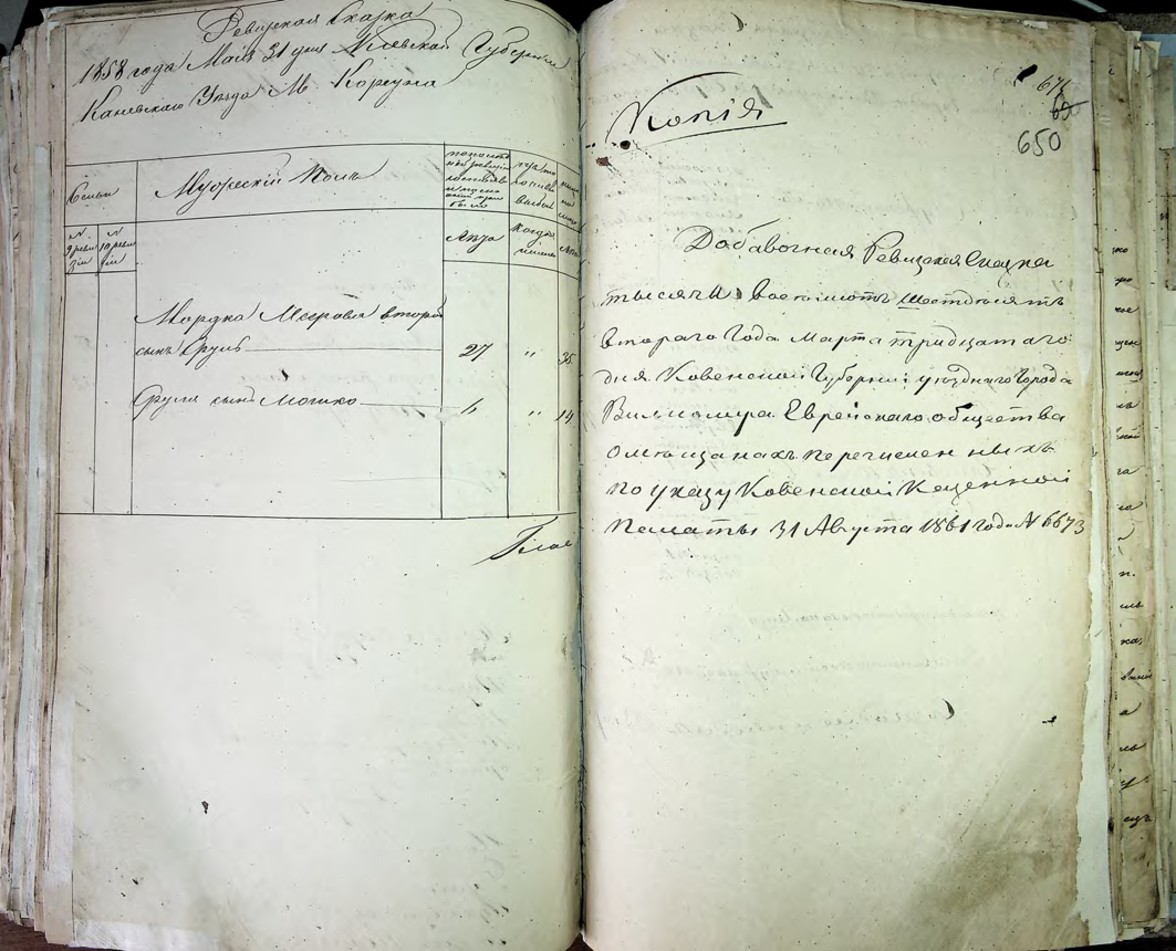 Ревизская Сказка
1858 года Маія 31 дня Кіевской Губерніи
Каневскаго Уѣзда М. Корсуна
Семьи
Мужескій Полъ
Лѣта
Когда
Лѣта
№
9 реви
зіи
№
10 реви
зіи
Мордка Меерова второй
сынъ Сруль 27 " 35
Сруля сынъ Мошко 6 " 14
671
Копія
650
Добавочная Ревизская Сказка
тысяча восемьсотъ Шестдесятъ
втораго Года Марта тридцатаго
дня Ковенской Губерніи уѣзднаго Города
Вилькомира Еврейскаго общества
о мещанахъ перечисленныхъ
по указу Ковенской Казенной
Палаты 31 Августа 1861 года № 6673